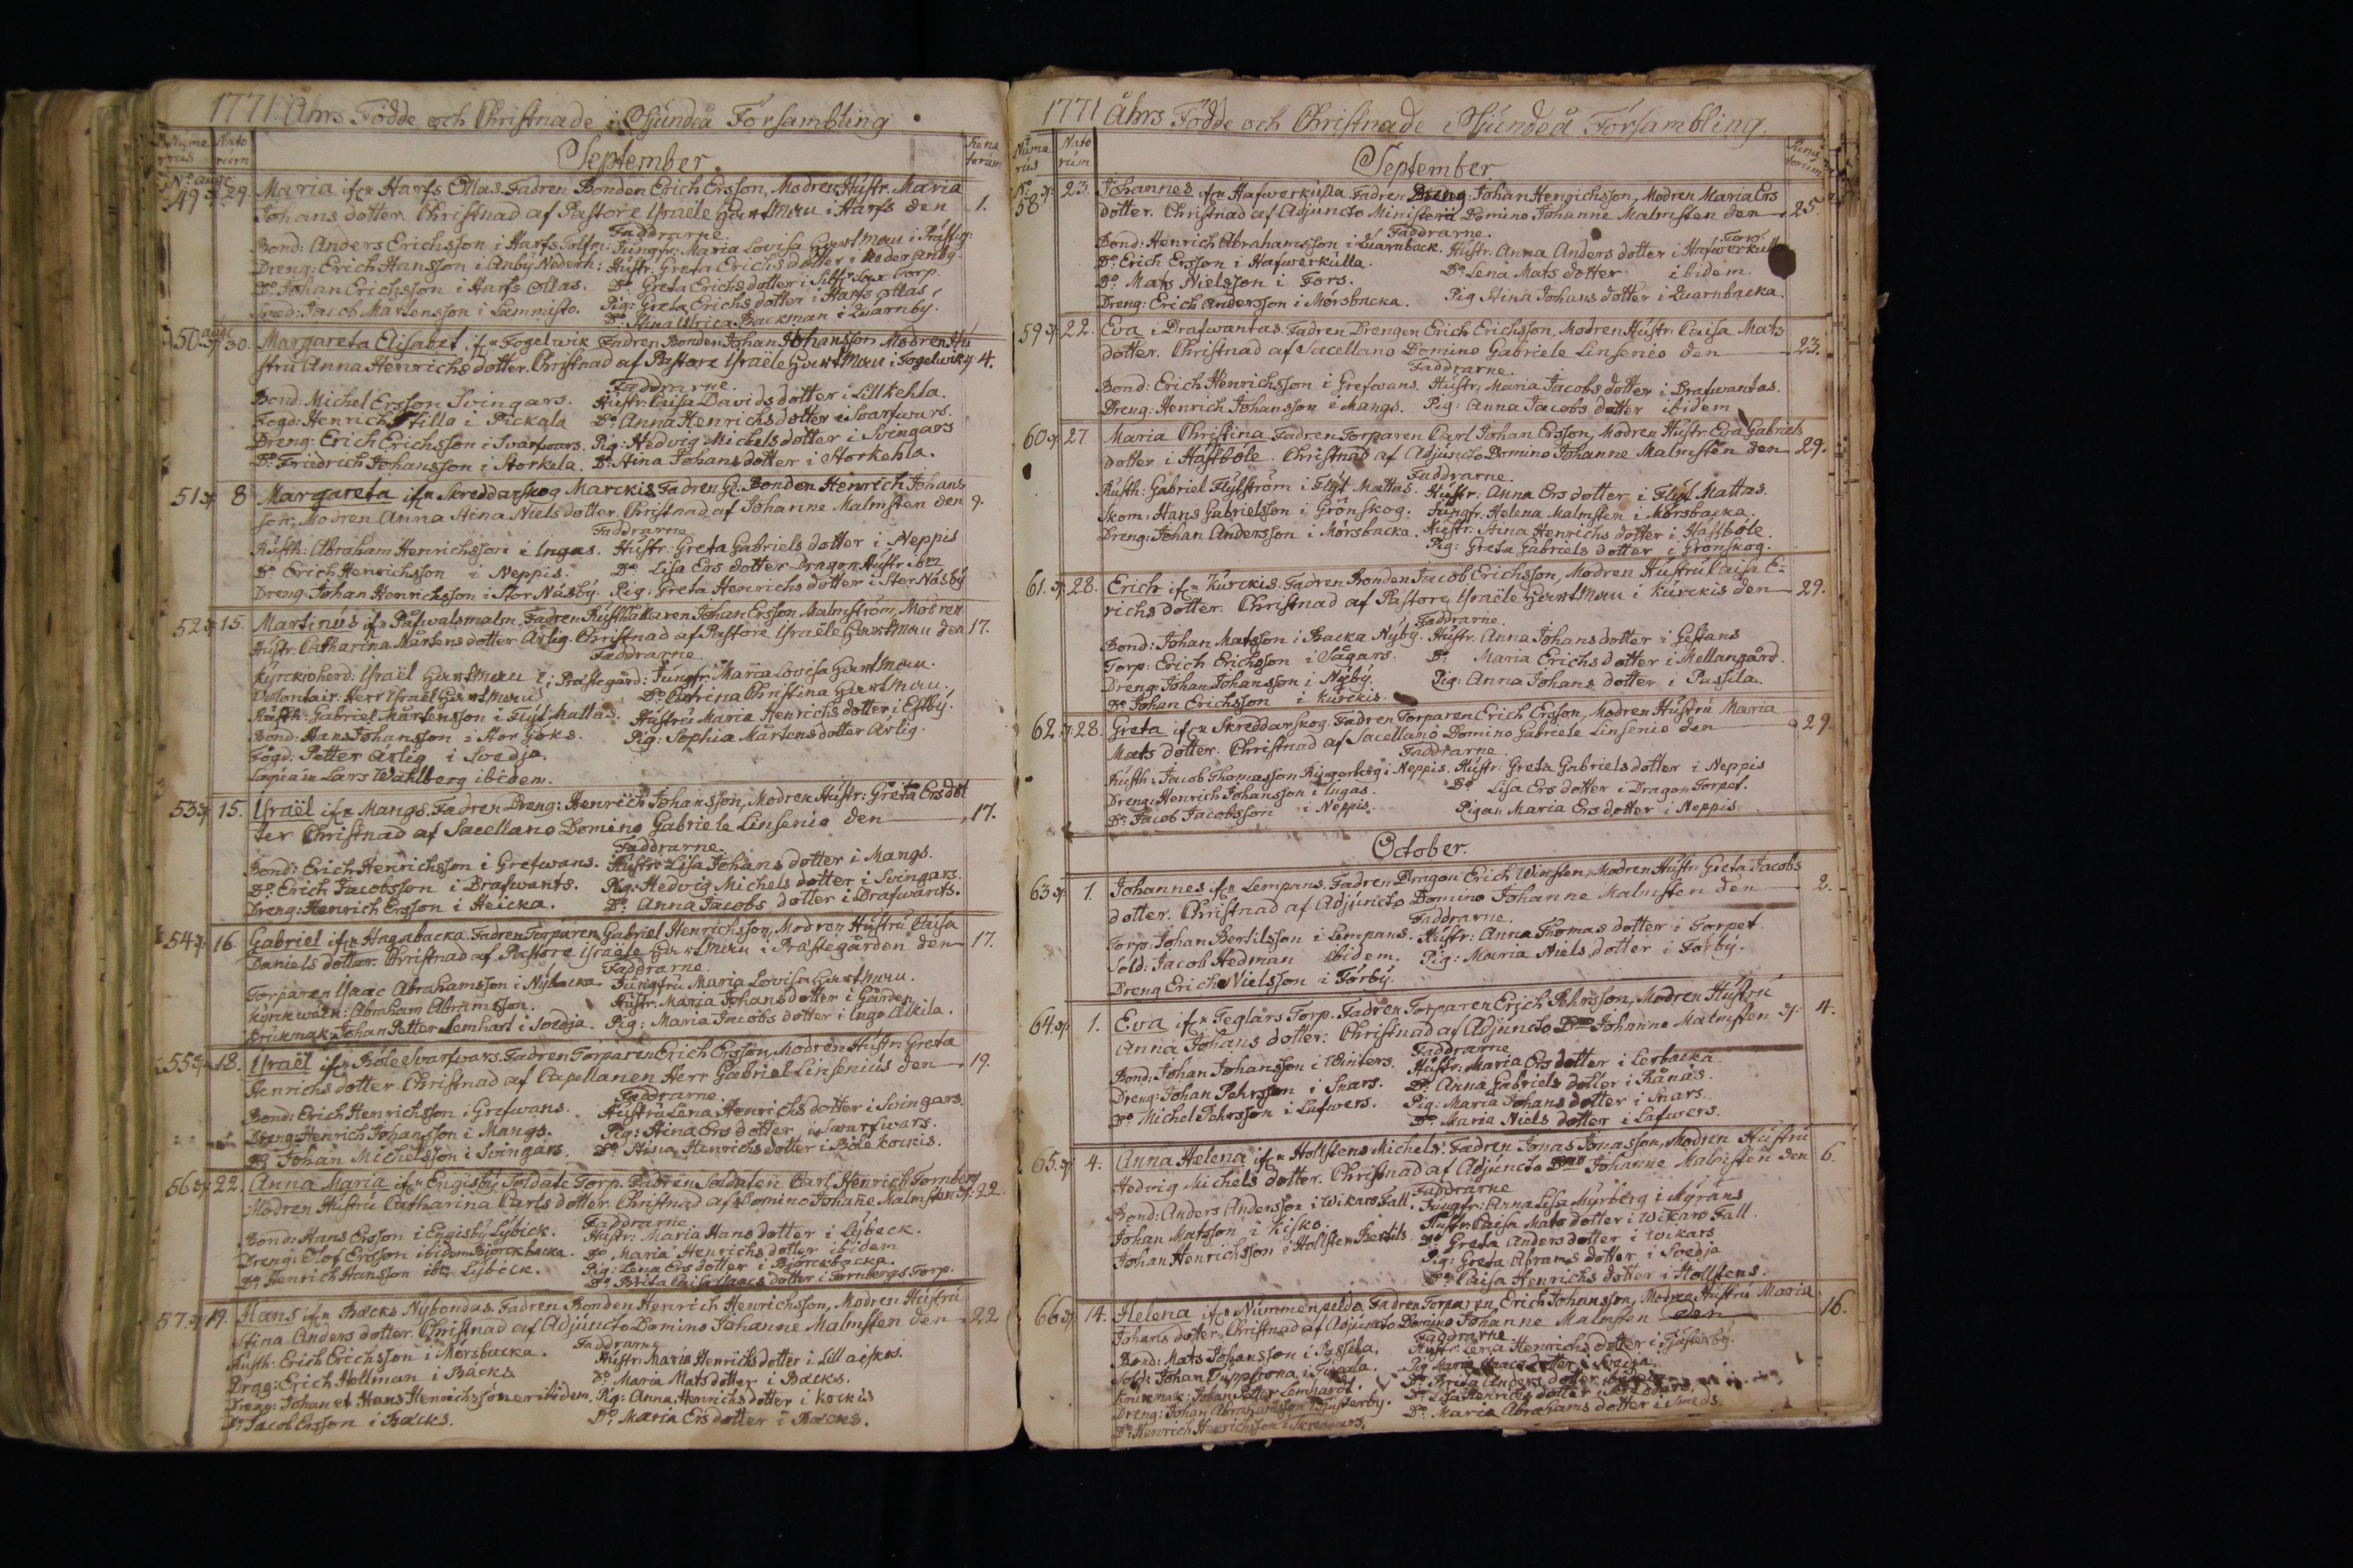 1771. Åhrs Födde och Christnade i Sjundeå Försambling
Nume rus Nato rum September. Rena torum
No 49 aug: 29. Maria ifrån Harfs Ollas. Fadren Bonden Erich Ersson, Modren Hustr. Maria
Johans dotter. Christnad af Pastore Israële Hartman i Harfs den 1.
Faddrarne.
Bond: Anders Erichsson i Harfs Jungfr: Maria Lovisa Hartman i Präsfg:
Dreng: Erich Hansson i Anby Nederh: Hustr. Greta Erichs dotter i Neder Anbÿ.
Do. Johan Erichsson i Harfs Ollas. Do Greta Erichs dotter i Torp.
Jacob Mårtensson i Lemmisto. Pig: Greta Erichs dotter i Harfs Ollas
Do Stina Ulrica Backman i Quarnbÿ.
50 aug: 30. Margareta Elisabet ifrån Fogelwik Fadren Bonden Johan Johansson Modren Hu
stru Anna Henrichs dotter. Christnad af Pastore Israële Hartman i Fogelwik 4.
Faddrarne.
Bond: Michel Ersson Svingars. Hustr. Caisa Davids dotter i Lillkehla.
Fogd: Henrich Stille i Pickala Do Anna Henrichs dotter i Svarfwars.
Dreng: Erich Erichsson i Svarfwars. Pig: Hedvig Michels dotter i Svingars
Do. Friedrich Johansson i Storkela. Do. Stina Johans dotter i Storkehla.
51 8 Margareta ifrån Skreddarskog Marckis Fadren Bonden Henrich Johans
son, Modren Anna Stina Niels dotter. Christnad af Johanne Malmsten den 9.
Faddrarne
Rusth: Abraham Henrichsson i Ingas. Hustr. Greta Gabriels dotter i Neppis
Do Erich Henrichsson i Neppis. Do Lisa Ers dotter Dragon Hustr ibm
Dreng: Johan Henrichsson i Stor Näsbÿ. Pig: Greta Henrichs dotter i Stor Näsbÿ
52 15. Martinus ifrån Påfwalsmalm. Fadren Rusthållaren Johan Ersson Malmström, Modren
Hustr. Catharina Mårtens dotter Ärlig. Christnad af Pastore Israële Hartman den 17.
Faddrarne.
Kyrckioherd: Israël Hartman i Prästegård: Jungfr: Maria Lovisa Hartman.
Volontair: Herr Israël Hartman Do Catrina Christina Hartman.
Rusth: Gabriel Mårtensson i Flÿt Mattas. Hustru Maria Henrichs dotter i Estbÿ.
Bond: Hans Johansson i Stor Göks. Pig: Sophia Mårtens dotter Ärlig.
Fogd: Petter Ärlig i Svedja.
Lars Wahlberg ibidem.
53 15. Israël ifrån Mangs. Fadren Dreng: Henrich Johansson, Modren Hustr: Greta Ers dot
ter Christnad af Sacellano Domino Gabriele Linsenio den 17.
Faddrarne.
Bond: Erich Henrichsson i Grefwans. Hustr Lisa Johans dotter i Mangs.
Do. Erich Jacobsson i Drafwants. Pig: Hedvig Michels dotter i Svingars.
Dreng: Henrich Ersson i Heicka. Do. Anna Jacobs dotter i Drafwants.
54 16. Gabriel ifrån Hagabacka Fadren Torparen Gabriel Henrichsson, Modren Hustru Caisa
Daniels dotter. Christnad af Pastore Israële Hartman i Prästegården den 17.
Faddrarne.
Torparen Isaac Abrahamsson i Nÿbacka. Jungfru Maria Lovisa Hartman.
Kyrckwäkt: Abraham Abramsson. Hustr. Maria Johans dotter i Gården
Krukmak: Johan Petter Lemhart i Svedja. Pig: Maria Jacobs dotter i Inga Alkila.
55 18. Israël ifrån Böle Svarfvars. Fadren Torparen Erich Ersson, Modren Hustr: Greta
Henrichs dotter. Christnad af Capellanen Herr Gabriel Linsenius den 19.
Faddrarne.
Bond: Erich Henrichsson i Grefwans. Hustru Lena Henrichs dotter i Svingars.
Dreng: Henrich Johansson i Mangs. Pig: Stina Ers dotter i Svarfwars.
Do. Johan Michelsson i Svingars. Do. Stina Henrichs dotter i Böle Kockis.
56 22. Anna Maria ifrån Engisbÿ Soldate Torp. Fadren Soldaten Carl Henrich Tornberg
Modren Hustru Catharina Carls dotter. Christnad af Domino Johanne Malmsten 22
Faddrarne
Bond: Hans Ersson i Engisbÿ Lÿbeck. Hustr: Maria Hans dotter i Lÿbeck.
Dreng: Olof Ersson ibidem Björckbacka. Do Maria Henrichs dotter ibidem
Do. Henrich Hansson ibm Lÿbeck. Pig: Lena Ers dotter i Björckbacka.
Do. Brita Caisa Isaacs dotter i Tornbergs Torp.
57. 19. Hans ifrån Bäcks Nÿbondas. Fadren Bonden Henrich Henrichsson, Modren Hustru
Stina Anders dotter. Christnad af Adjuncto Domino Johanne Malmsten den 22
Faddrarne
Rusth: Erich Erichsson i Morsbacka. Hustr: Maria Henrichs dotter i Lill
Drag: Erich Hollman i Bäcks Do Maria Mats dotter i Bäcks.
Dreng: Johan et Hans Henrichssöner ibidem. Pig: Anna Henrichs dotter i Kockis
Do Jacob Ersson i Bäcks. Do. Maria Ers dotter i Bäcks.
1771 Åhrs Födde och Christnade i Sjundeå Försambling.
Nume rus Nato rum September. Rena torum
No 58 23. Johannes ifrån Hafwerkulla Fadren Dreng: Johan Henrichsson, Modren Maria Ers
dotter. Christnad af Adjuncto Ministerii Domino Johanne Malmsten den 25.
Faddrarne.
Bond: Henrich Abrahamsson i Quarnback. Hustr. Anna Anders dotter i Hafwerkulla Torp
Do. Erich Ersson i Hafwerkulla. Do. Lena Mats dotter ibidem.
Do. Mats Nielsson i Fors.
Dreng: Erich Andersson i Morsbacka. Pig Stina Johans dotter i Quarnbacka.
59 22. Eva i Drafwantas. Fadren Drengen Erich Erichsson, Modren Hustr. Caisa Mats
dotter. Christnad af Sacellano Domino Gabriele Linsenio den 23.
Faddrarne.
Bond: Erich Henrichsson i Grefwans. Hustr: Maria Jacobs dotter i Drafwantas.
Dreng: Henrich Johansson i Mangs. Pig: Anna Jacobs dotter ibidem
60 27 Maria Christina. Fadren Torparen Carl Johan Ersson, Modren Hustr. Eva Gabriels
dotter i Hästböle. Christnad af Adjuncto Domino Johanne Malmsten den 29.
Faddrarne.
Rusth: Gabriel Flÿtström i Flÿt Mattas. Hustr: Anna Ers dotter i Flÿt Mattas.
Skom: Hans Gabrielsson i Grönskog. Jungfr. Helena Malmsten i Morsbacka.
Dreng: Johan Andersson i Morsbacka. Hustr. Stina Henrichs dotter i Hästböle.
Pig: Greta Gabriels dotter i Grönskog.
61. 28. Erich ifrån Kurckis. Fadren Bonden Jacob Erichsson, Modren Hustru Caisa E=
richs dotter. Christnad af Pastore Israële Hartman i Kurckis den 29.
Faddrarne.
Bond: Johan Matsson i Backa Nÿby. Hustr. Anna Johans dotter i Gestans
Torp: Erich Erichsson i Sågars. Do. Maria Erichs dotter i Mellangård.
Dreng: Johan Johansson i Nÿbÿ. Pig: Anna Johans dotter i Passila.
Do. Johan Erichsson i Kurckis.
62 28. Greta ifrån Skreddarskog. Fadren Torparen Erich Ersson, Modren Hustru Maria
Mats dotter. Christnad af Sacellano Domino Gabriele Linsenio den 29
Faddrarne.
Rusth: Jacob Thomasson i Neppis. Hustr: Greta Gabriels dotter i Neppis
Dreng: Henrich Johansson i Ingas. Do Lisa Ers dotter i Dragon Torpet.
Do. Jacob Jacobsson i Neppis. Pigan Maria Ers dotter i Neppis
October.
63 1. Johannes ifrån Lempans. Fadren Dragon Erich Winsten, Modren Hustr Greta Jacobs
dotter. Christnad af Adjuncto Domino Johanne Malmsten den 2.
Faddrarne.
Torp. Johan Bertilsson i Lempans. Hustr: Anna Thomas dotter i Torpet
Sold: Jacob Hedman ibidem. Pig: Maria Niels dotter i Torbÿ.
Dreng Erich Nielsson i Torbÿ.
64 1. Eva ifrån Teglars Torp. Fadren Torparen Erich Pehrsson, Modren Hustru
Anna Johans dotter. Christnad af Adjuncto Dno Johanne Malmsten 4.
Faddrarne
Bond: Johan Johansson i Winters. Hustr: Maria Ers dotter i Lerbacka.
Dreng: Johan Pehrsson i Snars. Do. Anna Gabriels dotter i Rånäs.
Do Michel Pehrsson i Lafwers. Pig: Maria Johans dotter i Snars.
Do. Maria Niels dotter i Lafwers.
65. 4. Anna Helena ifrån Hollstens Michels. Fadren Jonas Jonasson, Modren Hustru
Hedvig Michels dotter. Christnad af Adjuncto Dno Johanne Malmsten den 6.
Faddrarne
Bond: Anders Andersson i Wikars Fall. Jungfr: Anna Lisa Mÿrberg i Mÿrans
Johan Matsson i Kisko. Hustr. Caisa Mats dotter i Wikars Fall.
Johan Henrichsson i Hollsten Bertils. Do Greta Anders dotter i Wikars
Pig: Greta Abrams dotter i Svedja
Do. Caisa Henrichs dotter i Hollstens.
66 14. Helena ifrån Nummenpeldo Fadren Torparen, Erich Johansson, Modren Hustru Maria
Johans doter, Christnad af Adjuncto Domino Johanne Malmsten den 16.
Faddrarne
Bond: Mats Johansson i Passila. Hustr. Lena Henrichs dotter i Gesterbÿ.
Sold: Johan i Pig Maria Isaacs dotter i Svedja
Krukemak: Johan Petter Lemhardt. Do. Brita Anders dotter ibidem
Dreng: Johan Abrahamsson i Gesterby. Do. Lisa Henrichs dotter i
Do. Henrich Henrichsson i Skreddars. Do. Maria Abrahams dotter i Smeds.